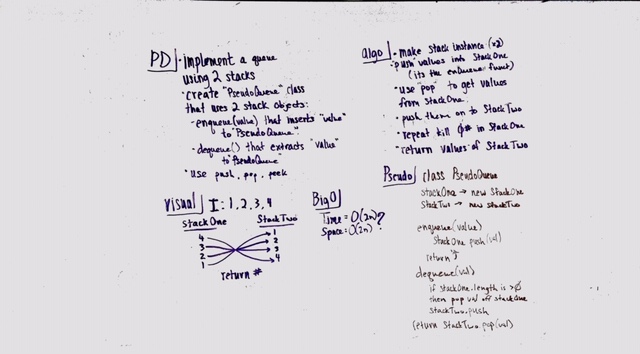 PD
• implement a queue
using 2 stacks
• create "PseudoQueue" class
that uses 2 stack objects:
- enqueue(value) that inserts "value"
to "PseudoQueue".
- dequeue() that extracts "value"
to "PseudoQueue"
• use push, pop, peek
Visual
I: 1, 2, 3, 4
StackOne
StackTwo
4
3
2
1
1
2
3
4
return #
Big O
Time = O(2n)
Space: O(2n)
?
algo
- make Stack instance (x2)
- "push" values into StackOne
(its the enQueue funct)
• use "pop" to get values
from StackOne
• push them on to StackTwo
• repeat till in StackOne
• return values of StackTwo
Pseudo
class PseudoQueue
stackOne → new StackOne
StackTwo → new stackTwo
enqueue(value)
StackOne.push(val)
return
dequeue(val)
if stackOne.length is >0
then pop val off stackOne
stackTwo.push
(return StackTwo.pop(val)